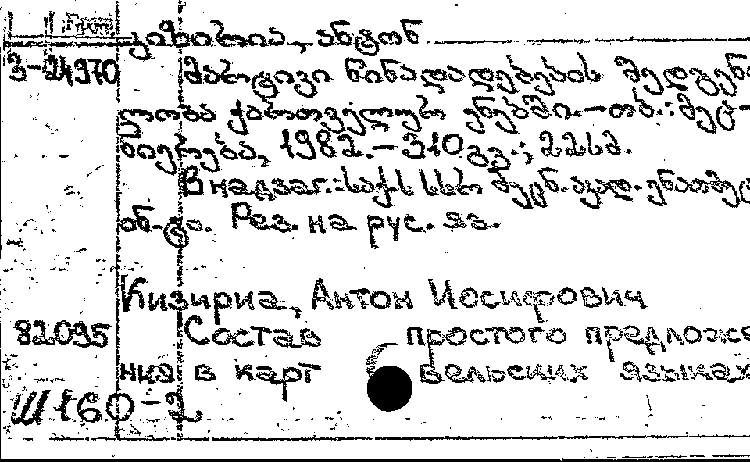 კიზირია, ანტონ
3-24970 მარტივი წინადადების შედგენი
ლობა ქართველურ ენებში.-თბ.:მეც-
ნიერება, 1982.-310გვ.; 22სმ.
В надзаг.:საქ.სსრ მეცნ.აკად.ენათმეც
ინ-ტი. Рез. на рус. яз.
Кизириа, Антон Иосифович
82095 Состав простого предложе
ния в карт вельских языках
Ш160-2